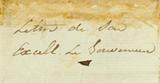 Lettre de Son
Excell. Le Gouverneur